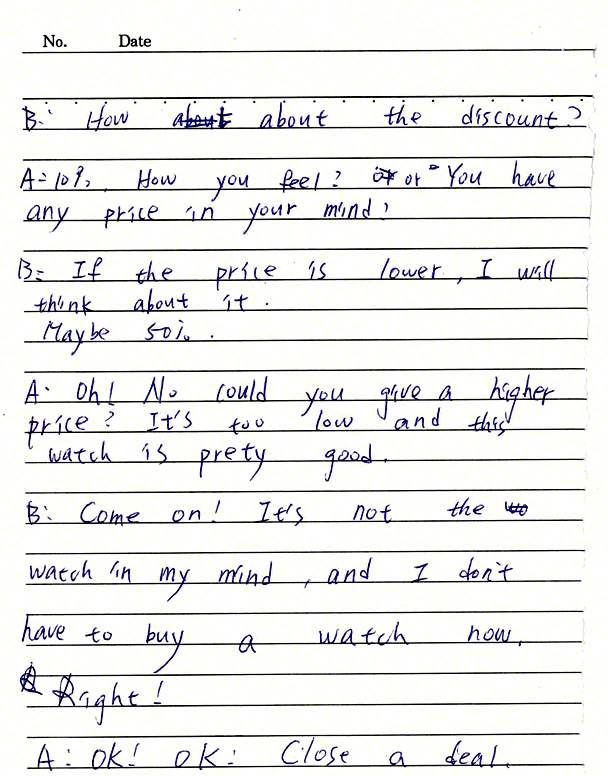 No. Date
B: How about about the discount?
A: 10%. How you feel? or or You have
any price in your mind?
B: If the price is lower, I will
think about it.
Maybe 50%.
A: Oh! No could you give a higher
price? It's too low and this
watch is prety good.
B: Come on! It's not the wo
watch in my mind, and I don't
have to buy a watch now.
Right!
A: OK! OK! Close a deal.